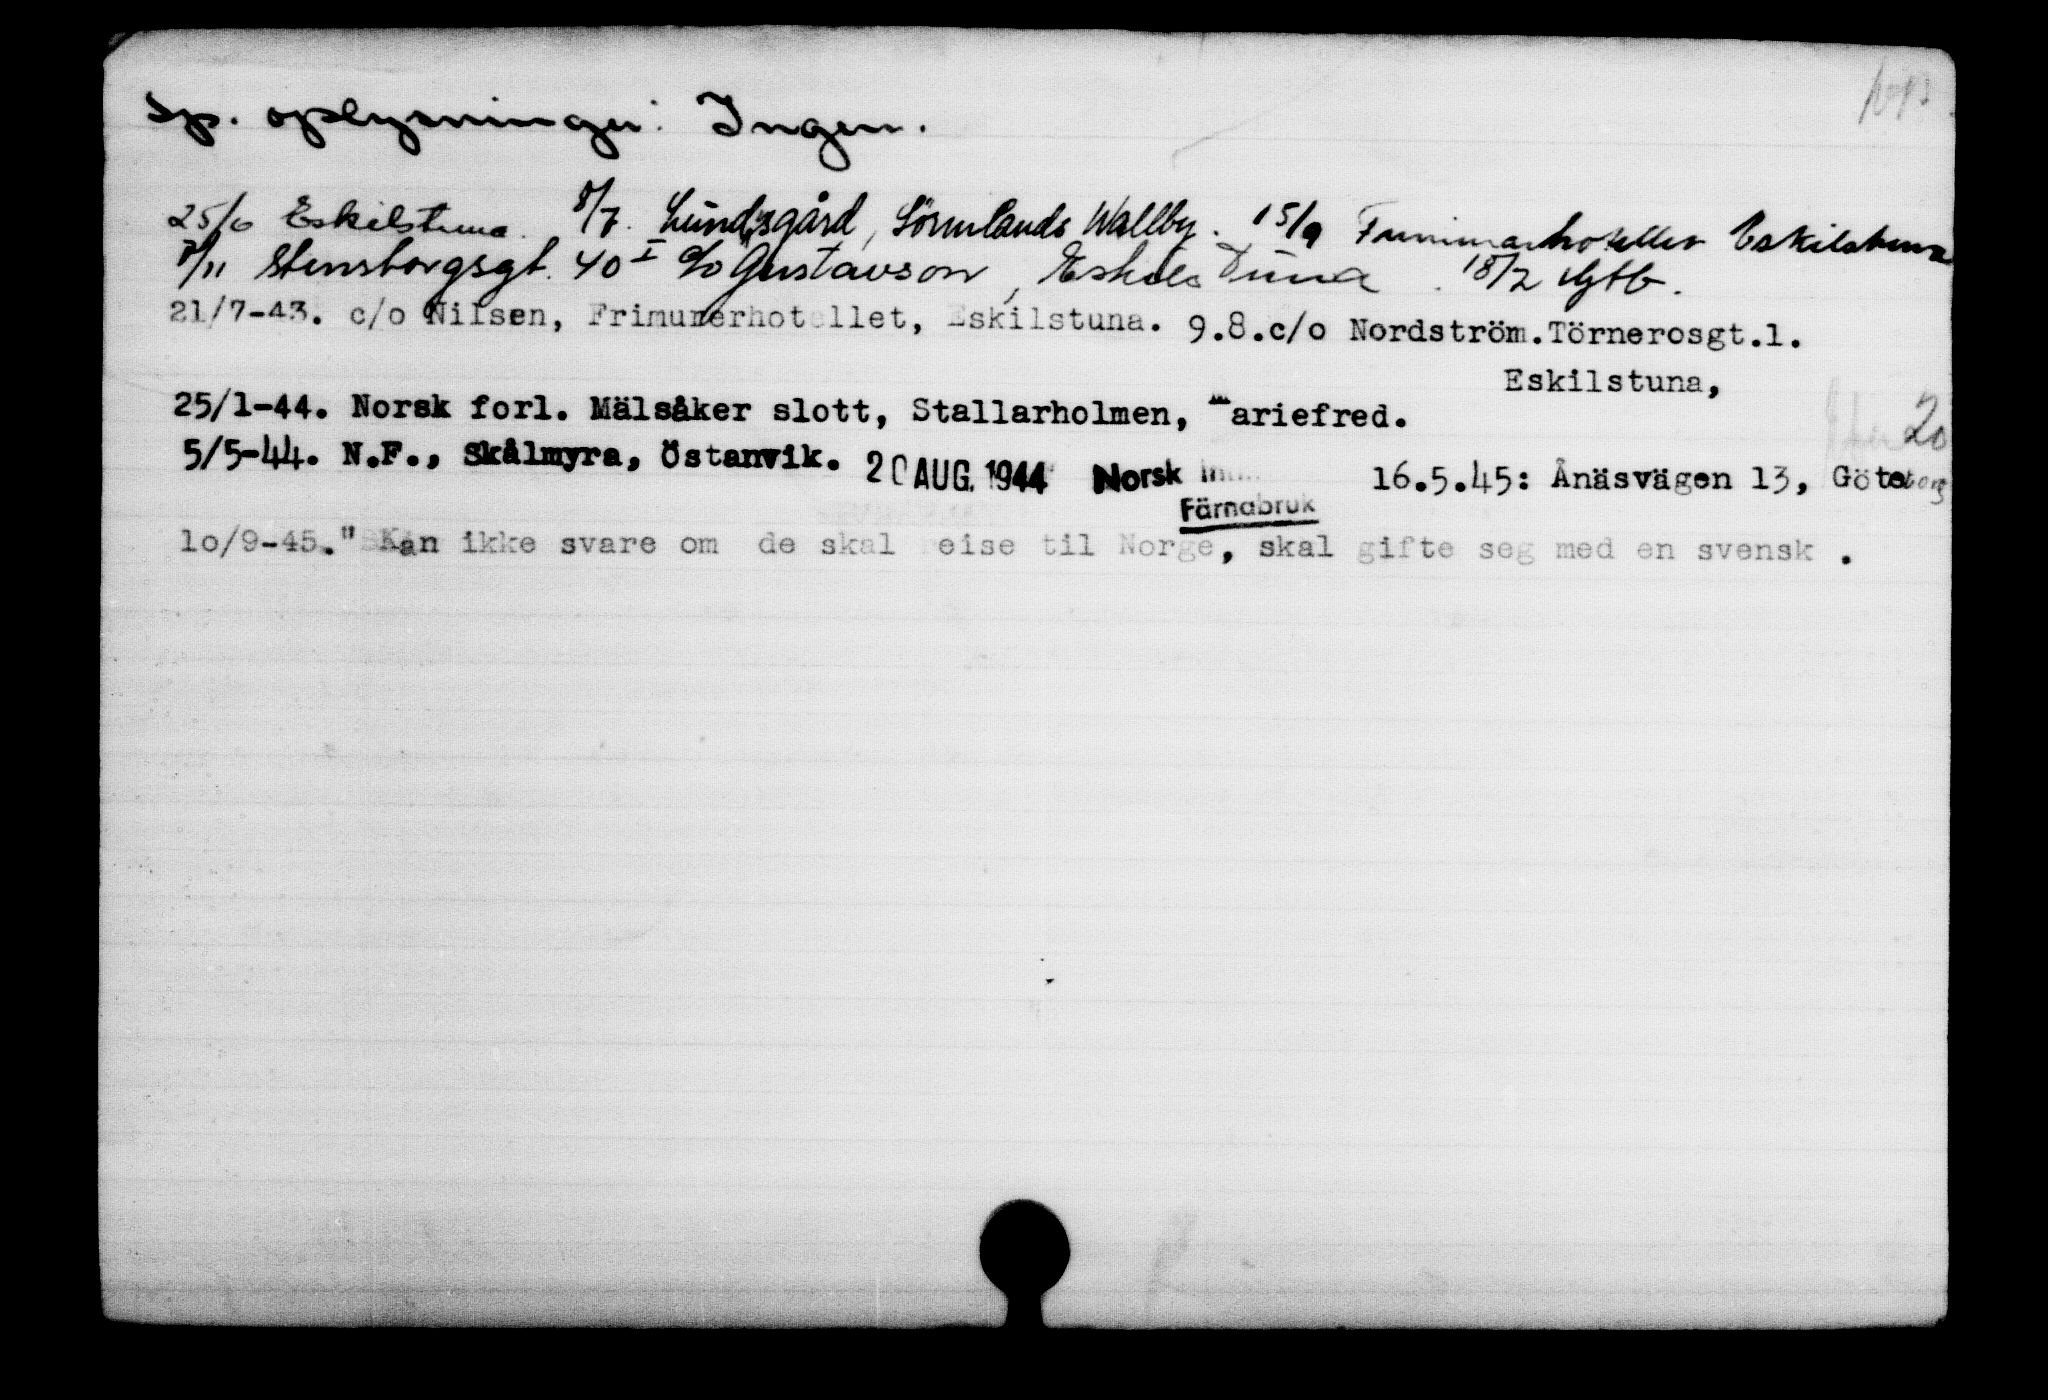 Sp. oplysninger: Ingen.
25/6 Eskilstuna. 8/7. Lundsgård, Sörmlands Wallby. 15/9 Frimurarhotellet Eskilstuna
7/11 Stensborgsgt. 40 I c/o Gustavson, Eskilstuna. 18/2 Gtb.
21/7-43. c/o Nilsen, Frimurerhotellet, Eskilstuna. 9.8.c/o Nordström.Törnerosgt.1.
Eskilstuna,
25/1-44. Norsk forl. Mälsåker slott, Stallarholmen, Mariefred.
20
5/5-44. N.F., Skålmyra, Östanvik. 20 AUG. 1944 Norsk 16.5.45: Ånäsvägen 13, Göteborg
Färnabruk
lo/9-45." Kan ikke svare om de skal reise til Norge, skal gifte seg med en svensk .